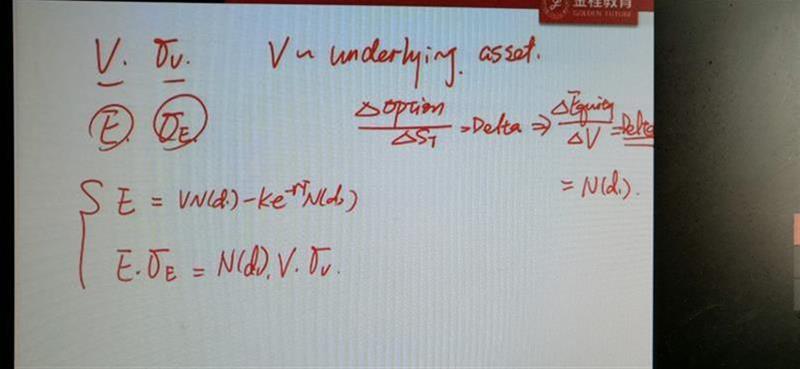 金程教育
GOLDEN FUTURE
V. σv. V ~ underlying asset.
E. σE. ΔOption/ΔST = Delta ⇒ ΔEquity/ΔV = Delta
= N(d1).
{ E = VN(d1) - Ke^-rT N(d2)
E·σE = N(d1)·V·σv.